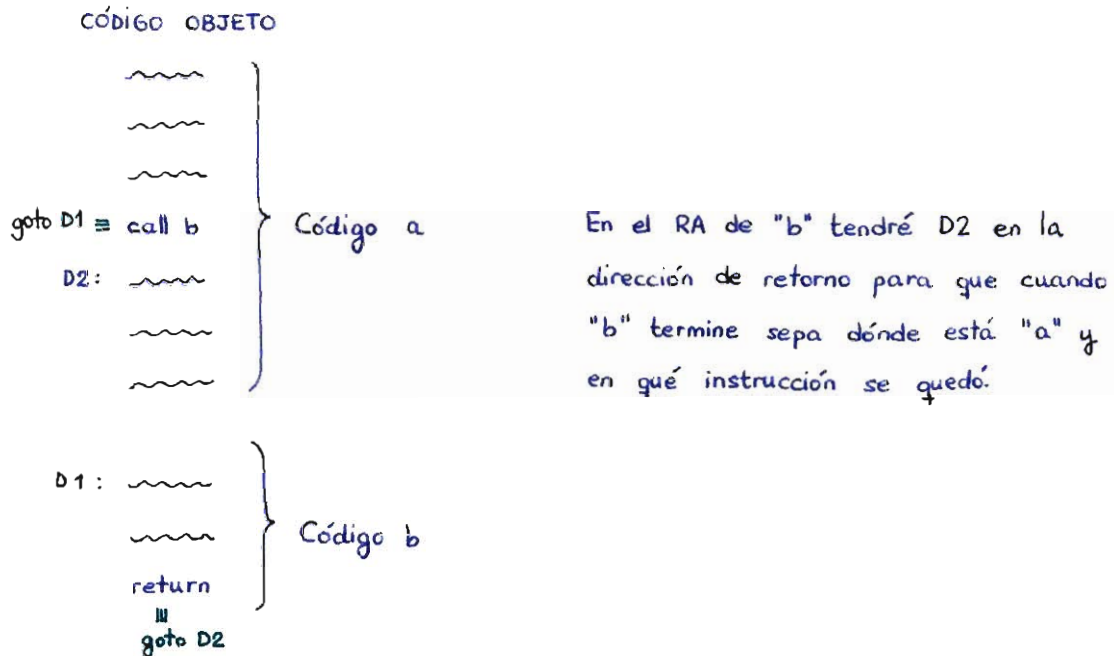 CÓDIGO OBJETO
goto D1 ≡ call b
Código a
D2:
En el RA de "b" tendré D2 en la
dirección de retorno para que cuando
"b" termine sepa dónde está "a" y
en qué instrucción se quedó.
D1:
Código b
return
≡
goto D2